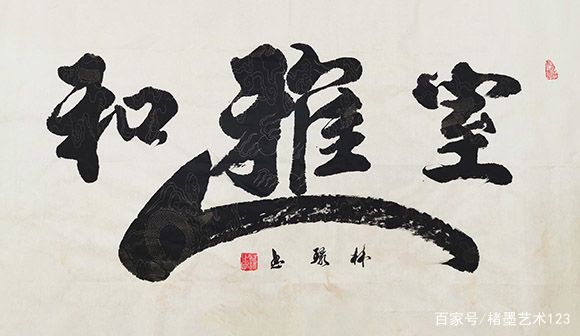 室雅和
林 书
百家号/楮墨艺术123